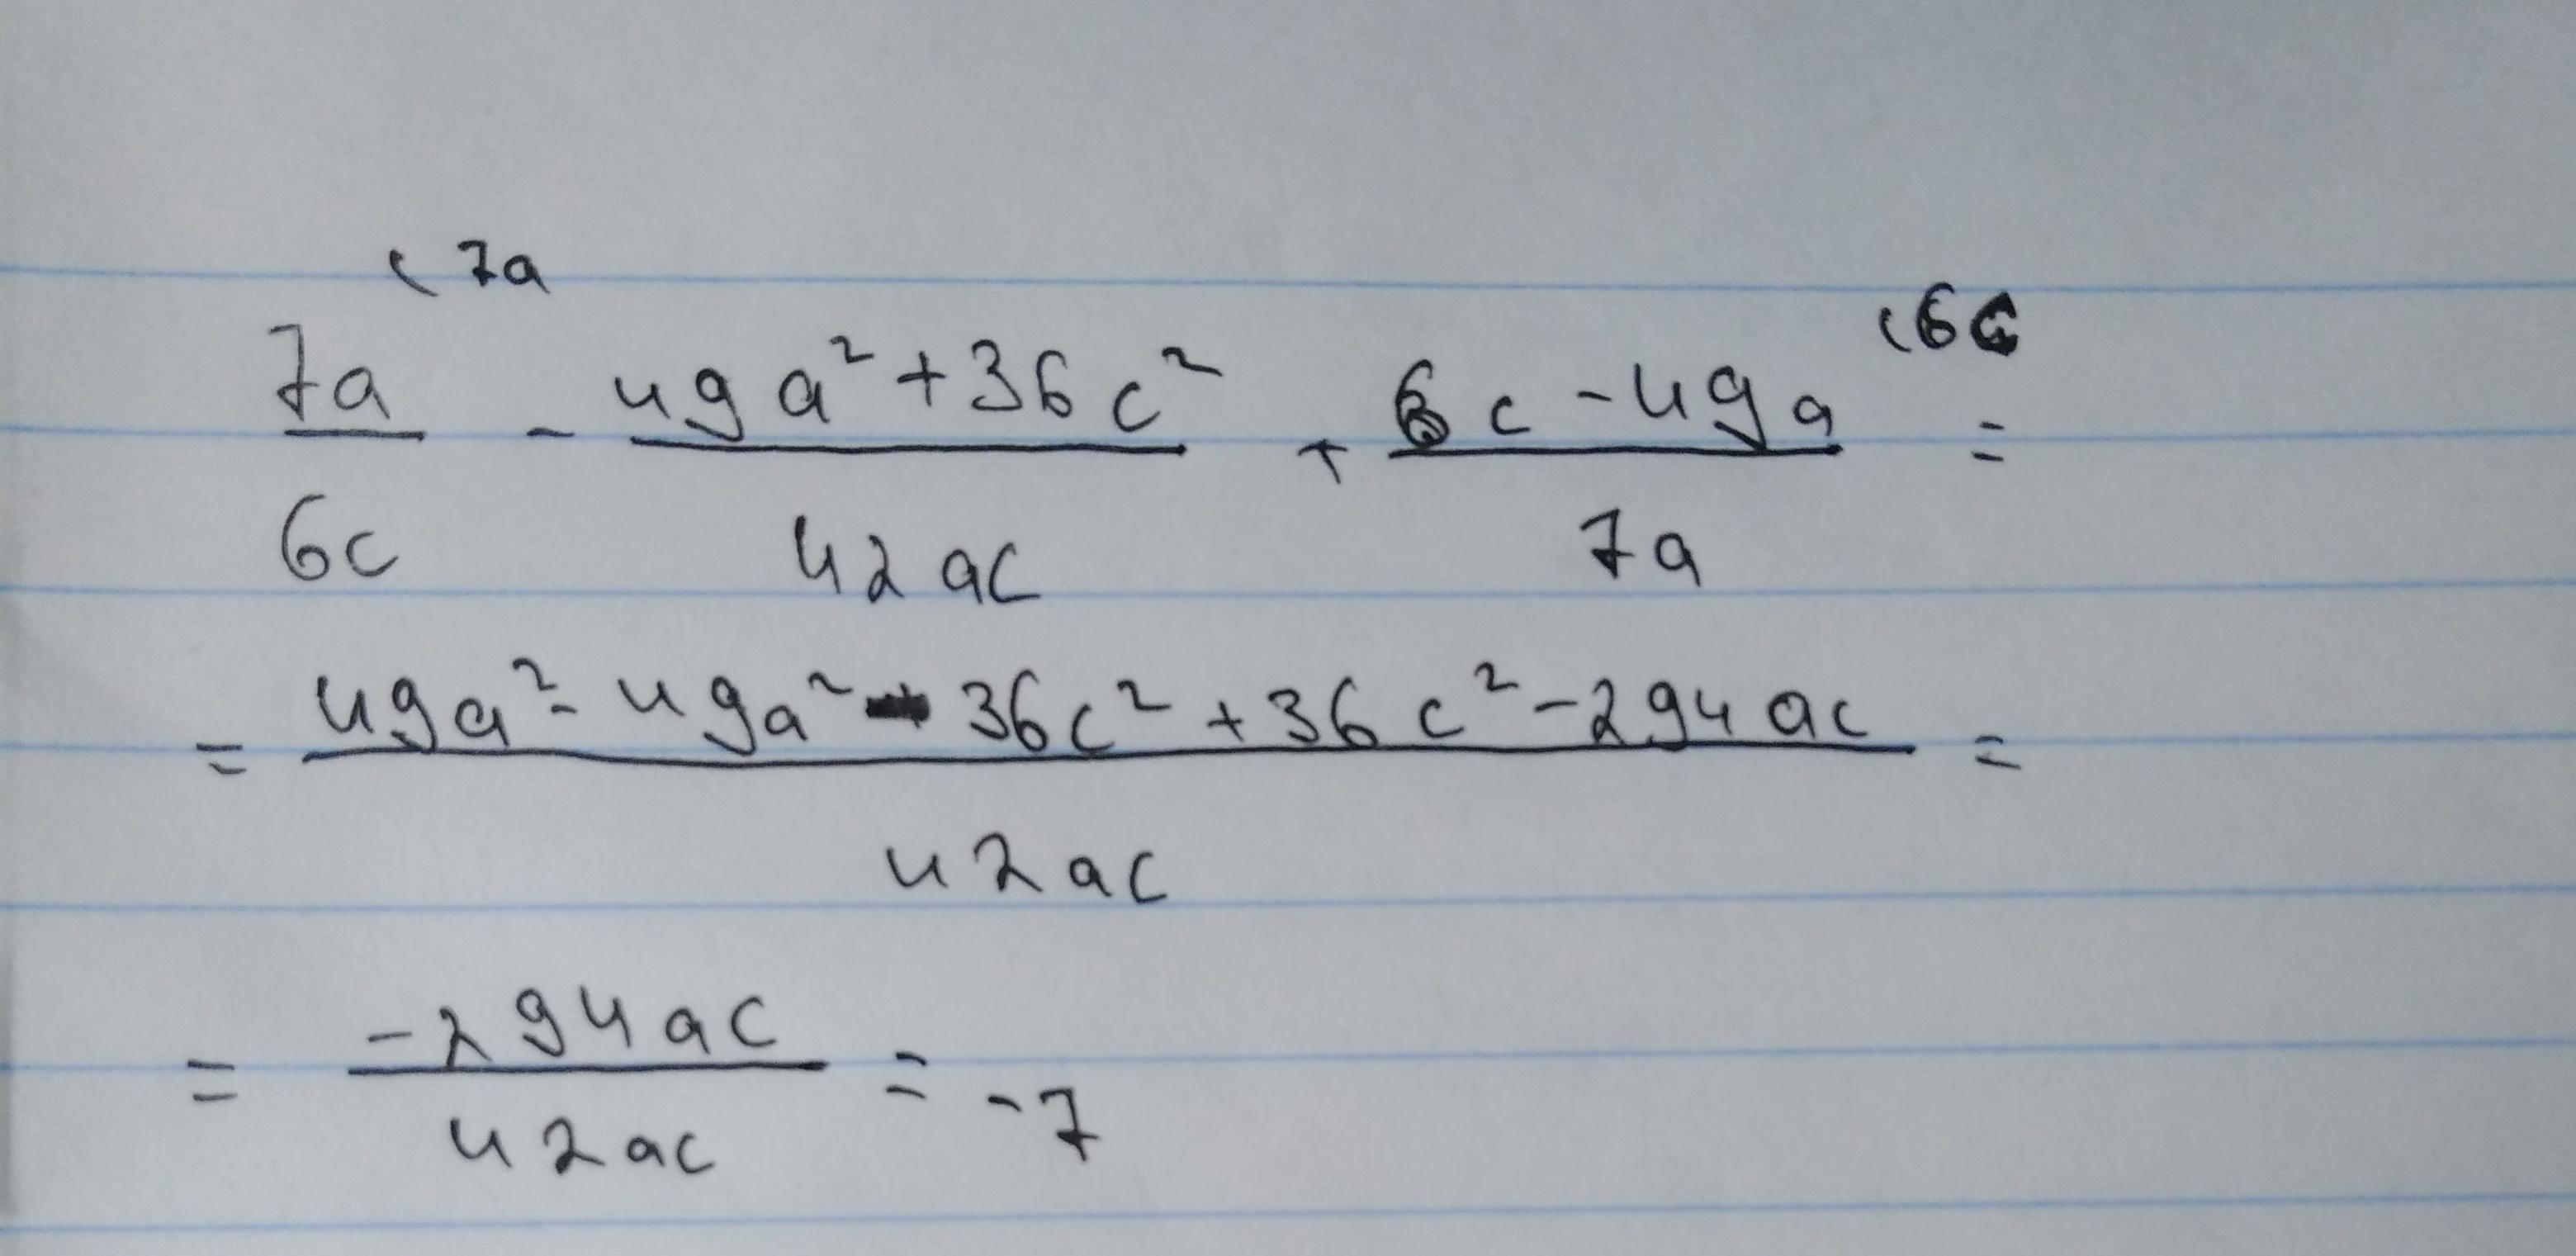 (7a (6c
7a/6c - (49a²+36c²)/(42ac) + (6c-49a)/(7a) =
= (49a²-49a²-36c²+36c²-294ac)/(42ac) =
= (-294ac)/(42ac) = -7